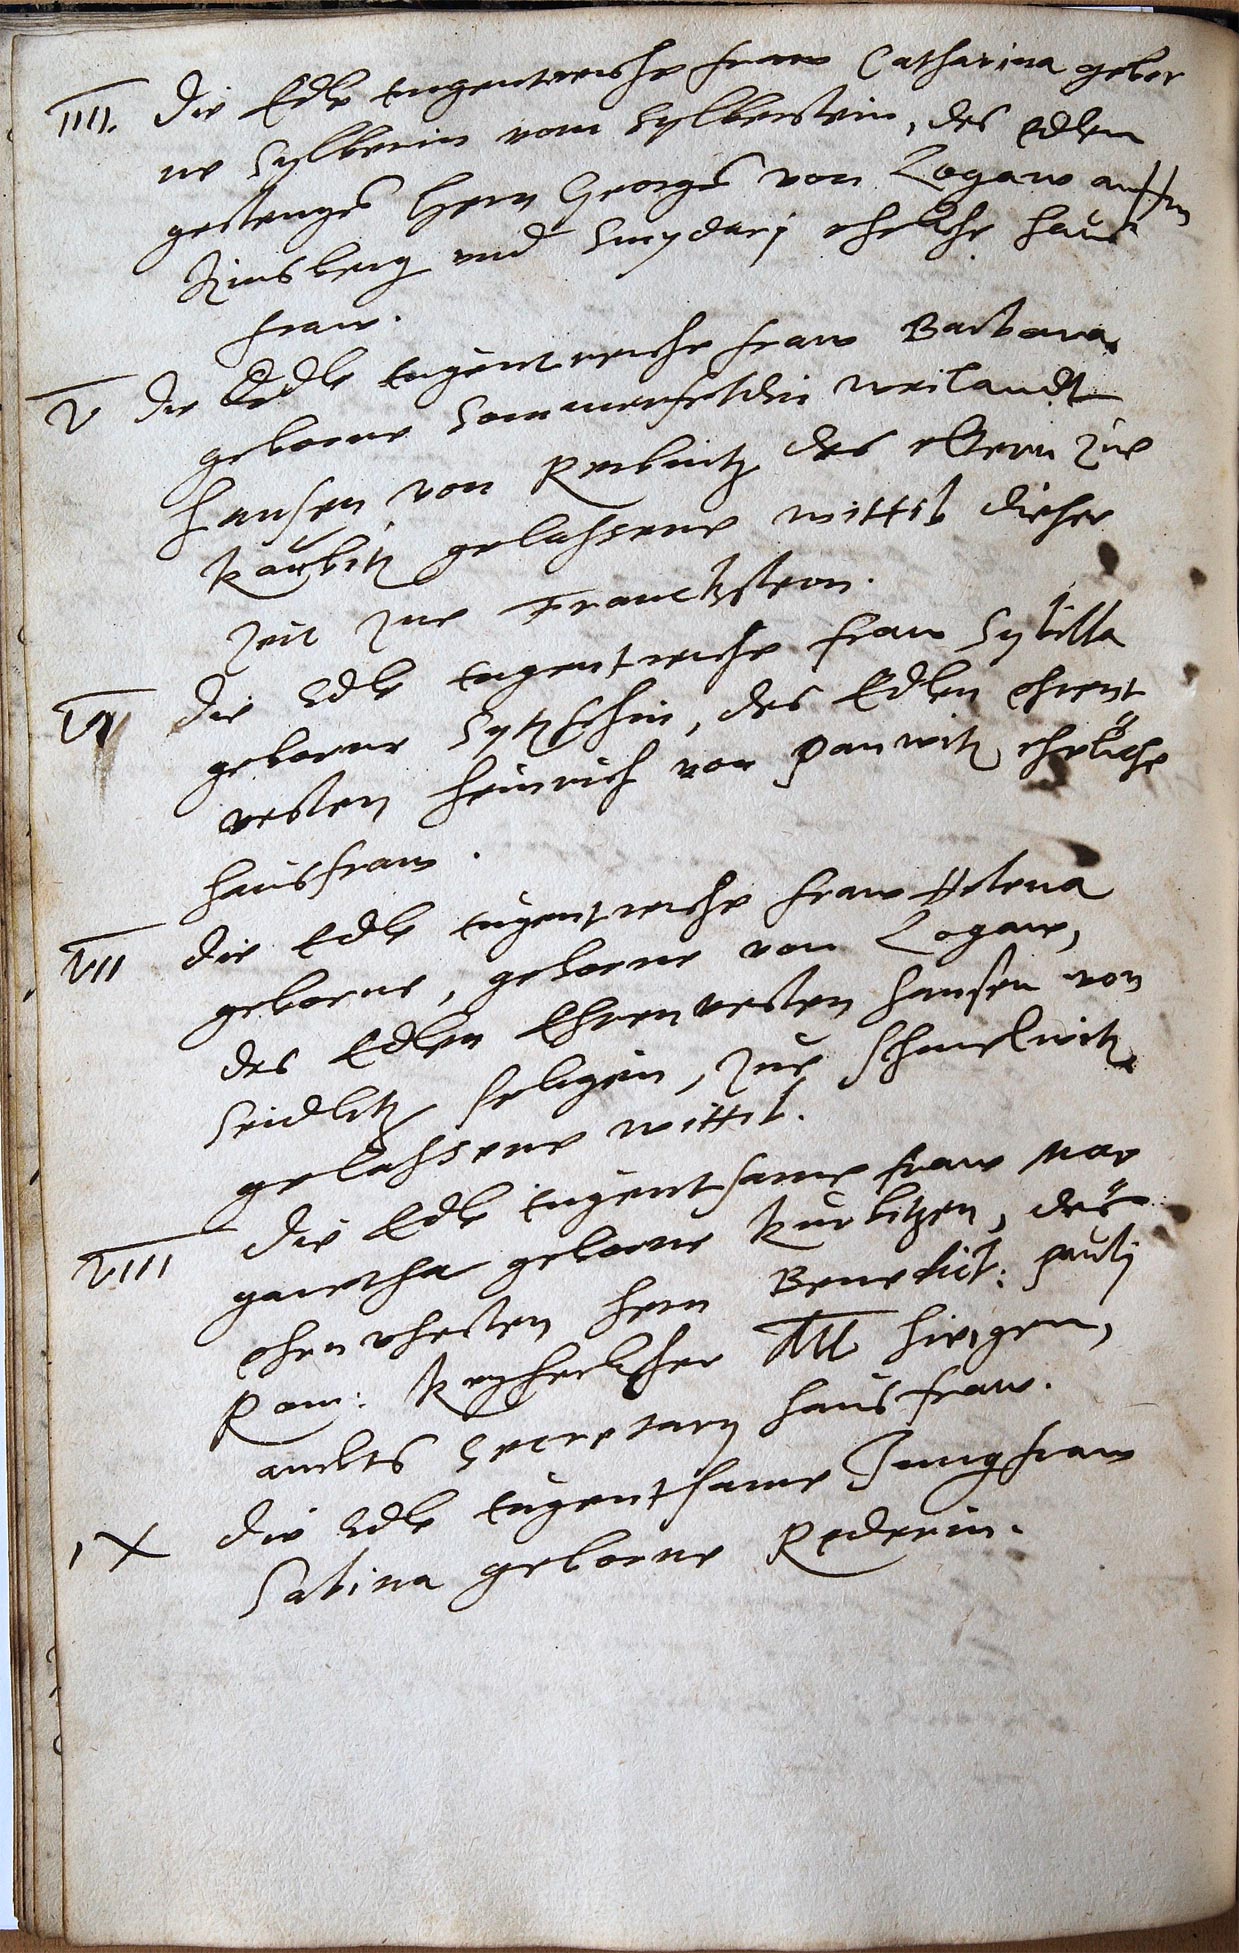 IIII. Die Edle tugentreiche fraw Catharina gebor
ne Sylberin vom Sylberstein, des Edlen
gestrenges Hern Georges von Logaw auff
Kinsberg vnd eheliche haus
fraw.
V Die Edle tugentreiche fraw Barbara
geborne Sommerfeldin weilandt
Hansen von Reibnitz des eltern zue
Kaubitz gelassene wittib dieser
Zeit zue Franckstein.
VI Die Edle tugentreiche fraw Sybilla
geborne des Edlen ehrent
vesten Heinrich von Panwitz eheliche
hausfraw.
VII Die Edle tugentreiche fraw Helena
geborne, geborne von Logaw,
des Edlen Ehrenvesten Hansen von
Seidlitz seligen, zue Schmelwitz
gelassene wittib.
VIII Die Edle tugentsame fraw Mar
garetha geborne Kurbitzen, des
ehrnvhesten Hern Benedict: Pauli
Rom: Keyserlicher Mt hiesigen,
ambts Secretary hausfraw.
IX Die Edle tugentsame Jungfraw
Sabina geborne Rederin.